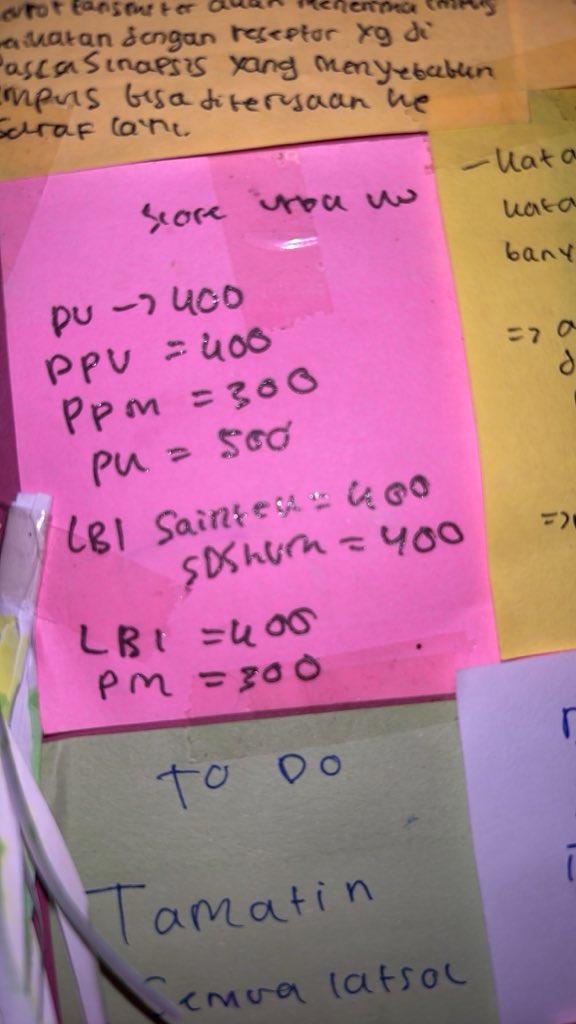 menerima impus
dengan reseptor yg di
pascasinapsis yang menyebabkan
impus bisa diterusaan ke
saraf lain.
Score
PU -> 400
PPU = 400
PPM = 300
PU = 500
LBI Saintek = 400
soshum = 400
LBI = 400
PM = 300
TO DO
Tamatin
semua latsol
- kata
kata
bany
=> a
d
=>